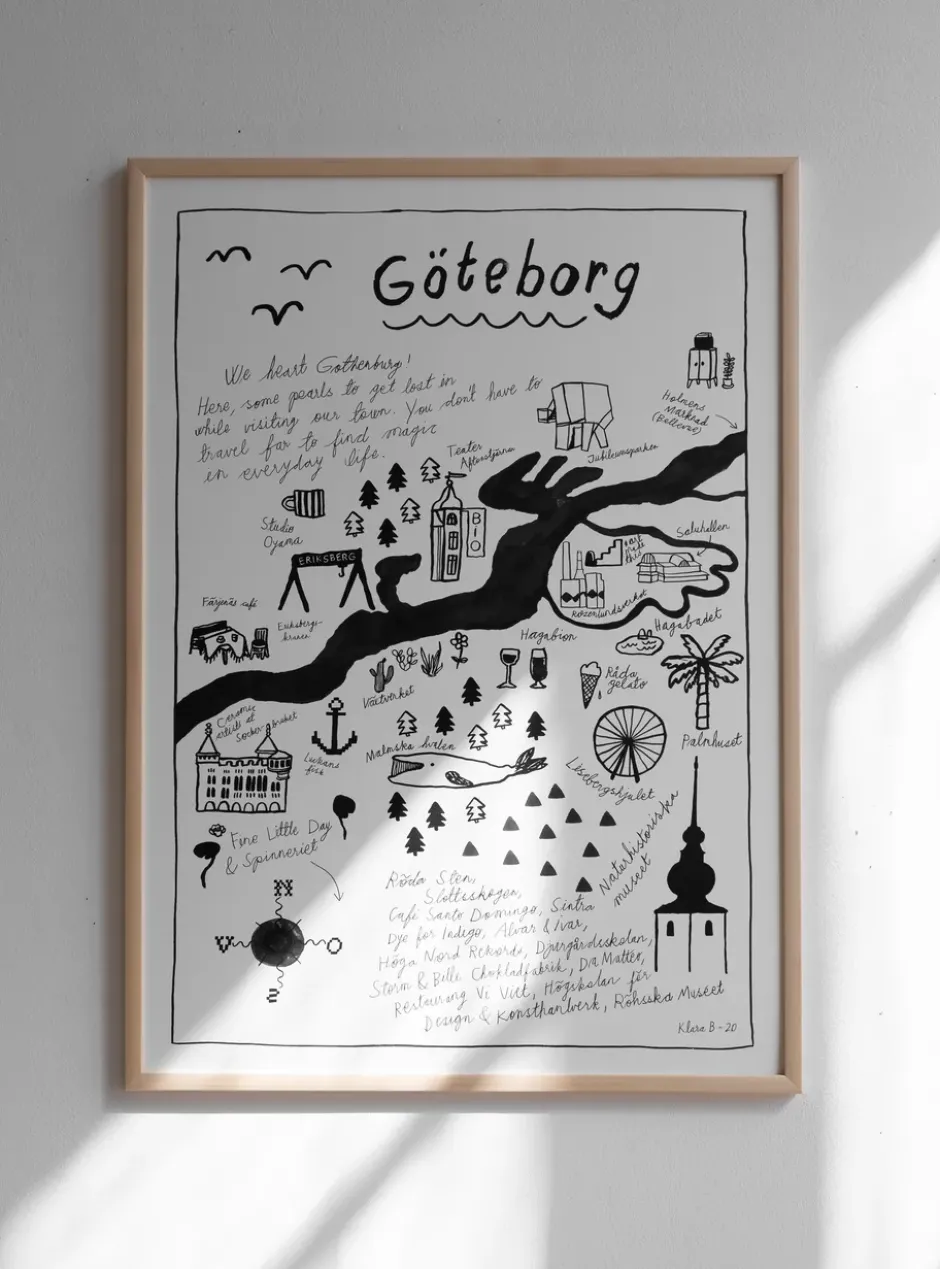 Göteborg
We heart Gothenburg!
Here, some pearls to get lost in
while visiting our town. You don't have to
travel far to find magic
en everyday life.
Holmens
Marknad
(Bellevue)
Jubileumsparken
Teater
Aftonstjärnan
BIO
Studio
Oyama
ERIKSBERG
Eriksbergs-
kranen
Färjenäs café
Saluhallen
Rosenlundsverket
Hagabadet
Hagabion
Växtverket
Röda
gelato
Palmhuset
Ceramic
artists at
Sockerbruket
Malmska valen
Lisebergshjulet
Naturhistoriska
museet
Fine Little Day
& Spinneriet
N
V
O
S
Röda Sten,
Slottsskogen,
Café Santo Domingo, Sintra
Dye for Indigo, Alvar & Ivar,
Höga Nord Rekords, Djurgårdsskolan,
Storm & Belle Chokladfabrik, Da Matteo,
Restaurang Vi Vict, Högskolan för
Design & Konsthantverk, Röhsska Muséet
Klara B - 20